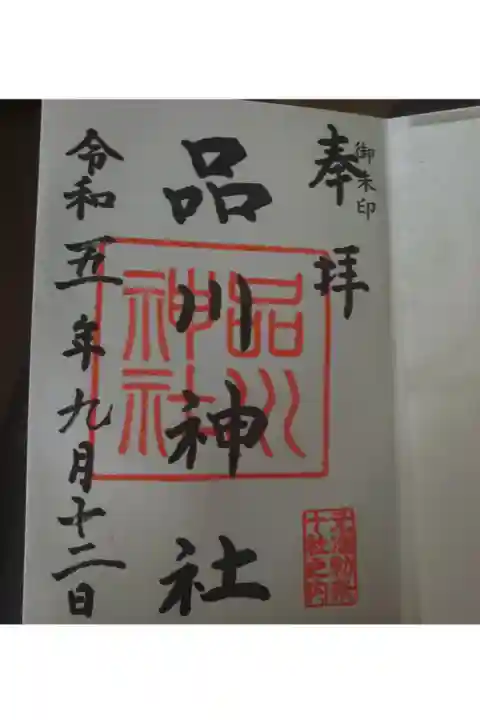 御朱印
奉拝
品川神社
品川
神社
令和五年九月十二日